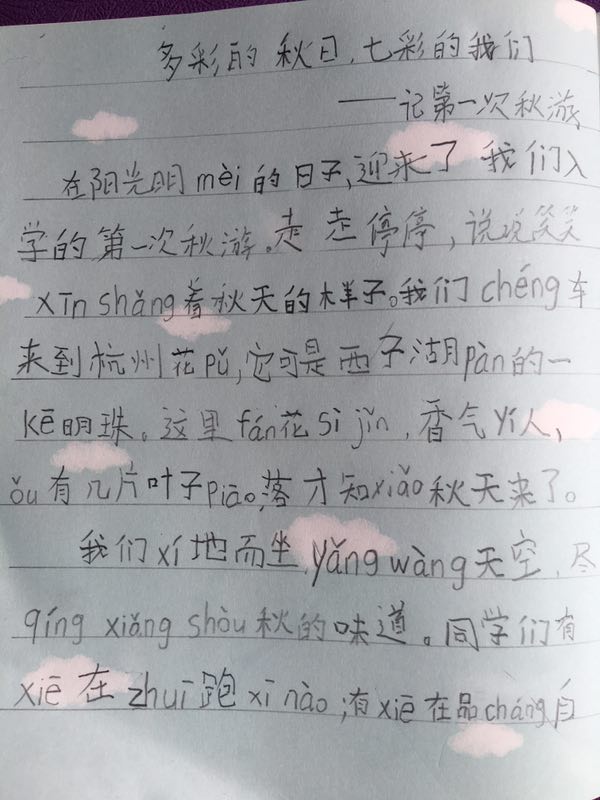 多彩的秋日,七彩的我们
——记第一次秋游
在阳光明mèi的日子,迎来了我们入
学的第一次秋游。走走停停,说说笑笑
xīn shǎng着秋天的样子。我们chéng车
来到杭州花pǔ,它可是西子湖pàn的一
kē明珠。这里fán花sì jǐn,香气yí人,
ǒu有几片叶子piāo落才知xiǎo秋天来了。
我们xí地而坐,yǎng wàng天空,尽
qíng xiǎng shòu秋的味道。同学们有
xiē在zhuī跑xī nào;有xiē在品cháng自